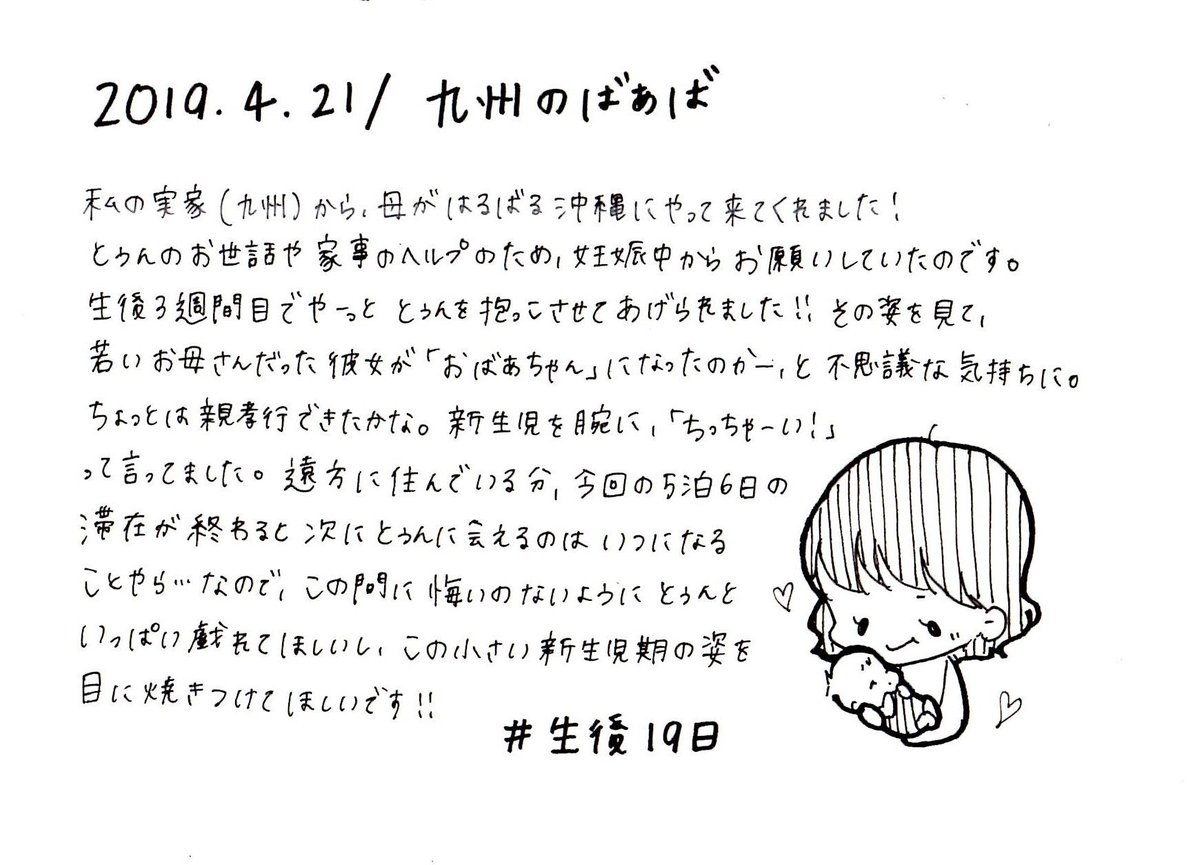 2019.4.21/ 九州のばぁば
私の実家(九州)から、母がはるばる沖縄にやって来てくれました!
とぅんのお世話や家事のヘルプのため、妊娠中からお願いしていたのです。
生後3週間目でやーっととぅんを抱っこさせてあげられました!!その姿を見て、
若いお母さんだった彼女が「おばあちゃん」になったのかー、と不思議な気持ちに。
ちょっとは親孝行できたかな。新生児を腕に、「ちっちゃーい!」
って言ってました。遠方に住んでいる分、今回の5泊6日の
滞在が終わると次にとぅんに会えるのはいつになる
ことやら…なので、この間に悔いのないようにとぅんと
いっぱい戯れてほしいし、この小さい新生児期の姿を
目に焼きつけてほしいです!!
#生後19日